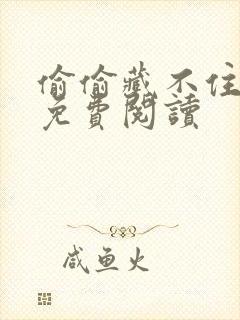 偷偷藏不住
免費閱讀
咸鱼火